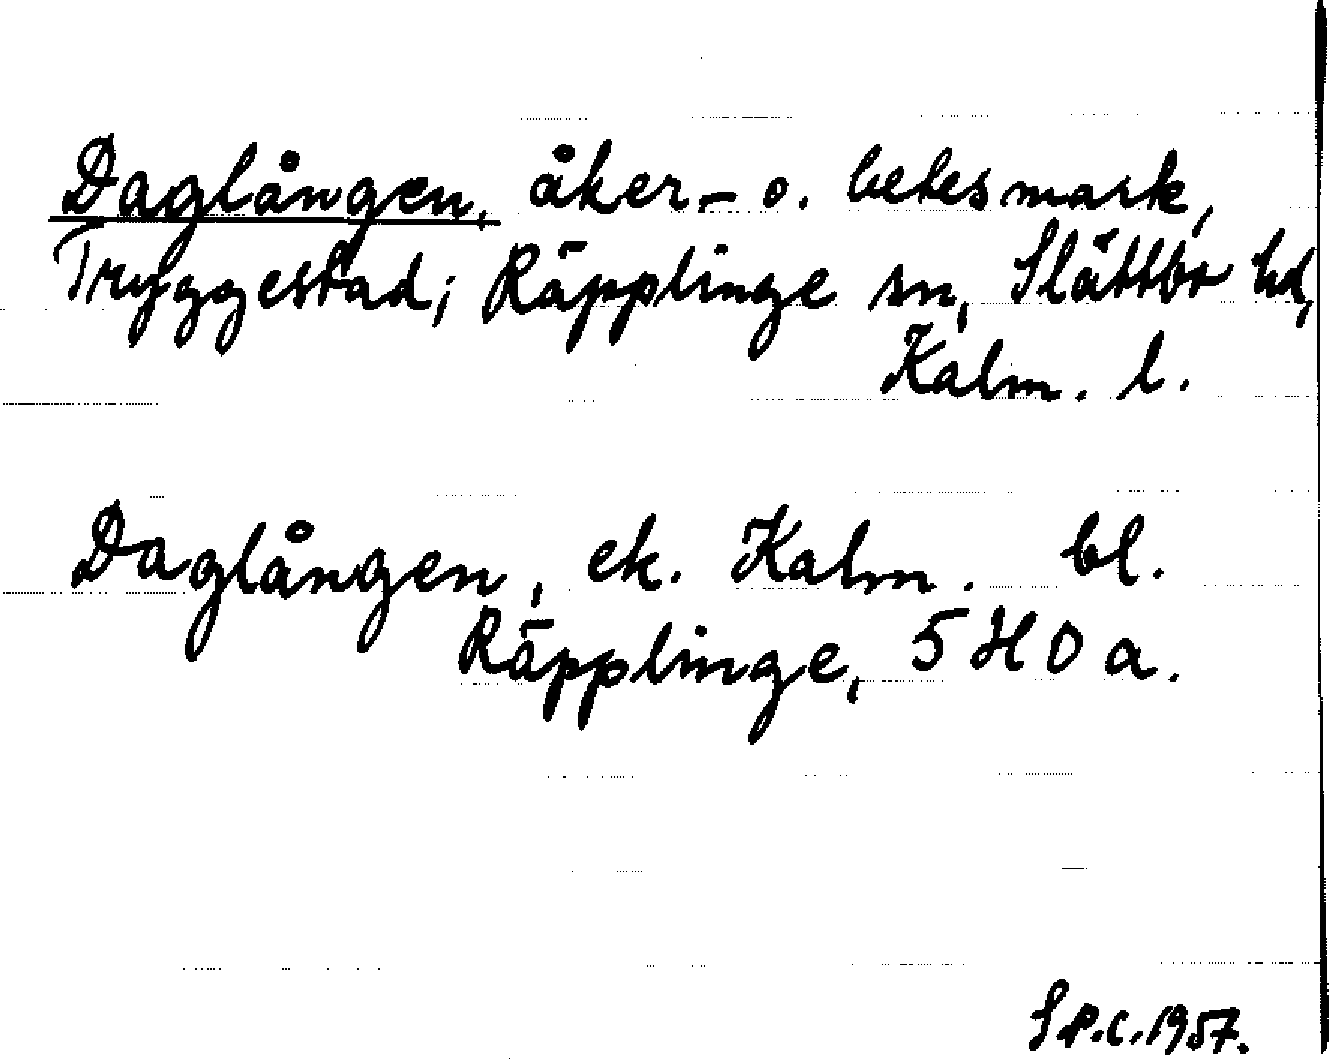 Daglången, åker- o. betesmark,
Tryggestad; Räpplinge sn, Slättbo hd,
Kalm. l.
Daglången, ek. Kalm. bl.
Räpplinge, 5 H 0 a.
S.P.C. 1957.